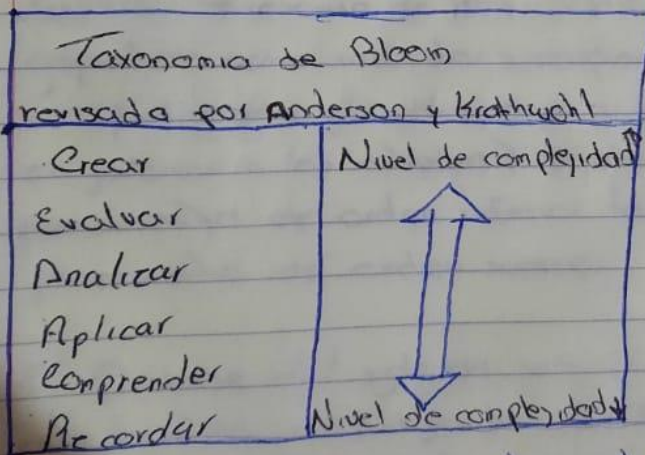 Taxonomia de Bloom
revisada por Anderson y Krathwohl
Crear
Evaluar
Analizar
Aplicar
Comprender
Recordar
Nivel de complejidad↑
Nivel de complejidad↓